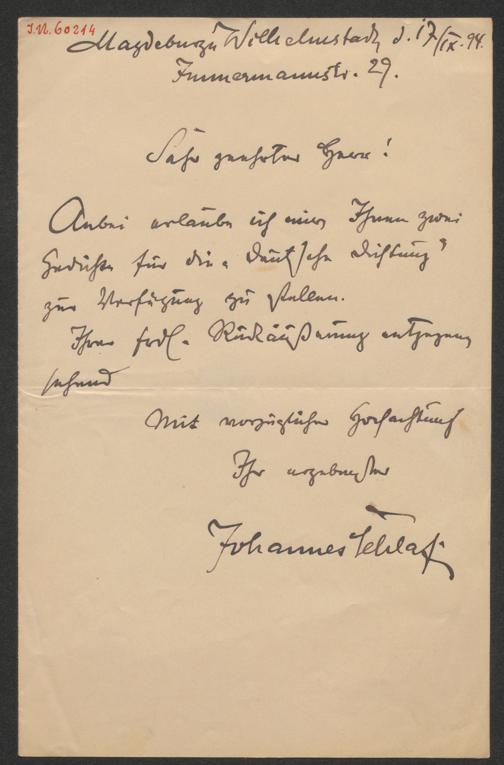 J.N. 60214
Magdeburg, Wilhelmstadt, d. 17/IX. 94.
Immermannstr. 29.
Sehr geehrter Herr!
Anbei erlaube ich mir, Ihnen zwei
Gedichte für die „Deutsche Dichtung"
zur Verfügung zu stellen.
Ihrer frdl. Rückäußerung entgegen
sehend
Mit vorzüglicher Hochachtung
Ihr ergebenster
Johannes Schlaf.